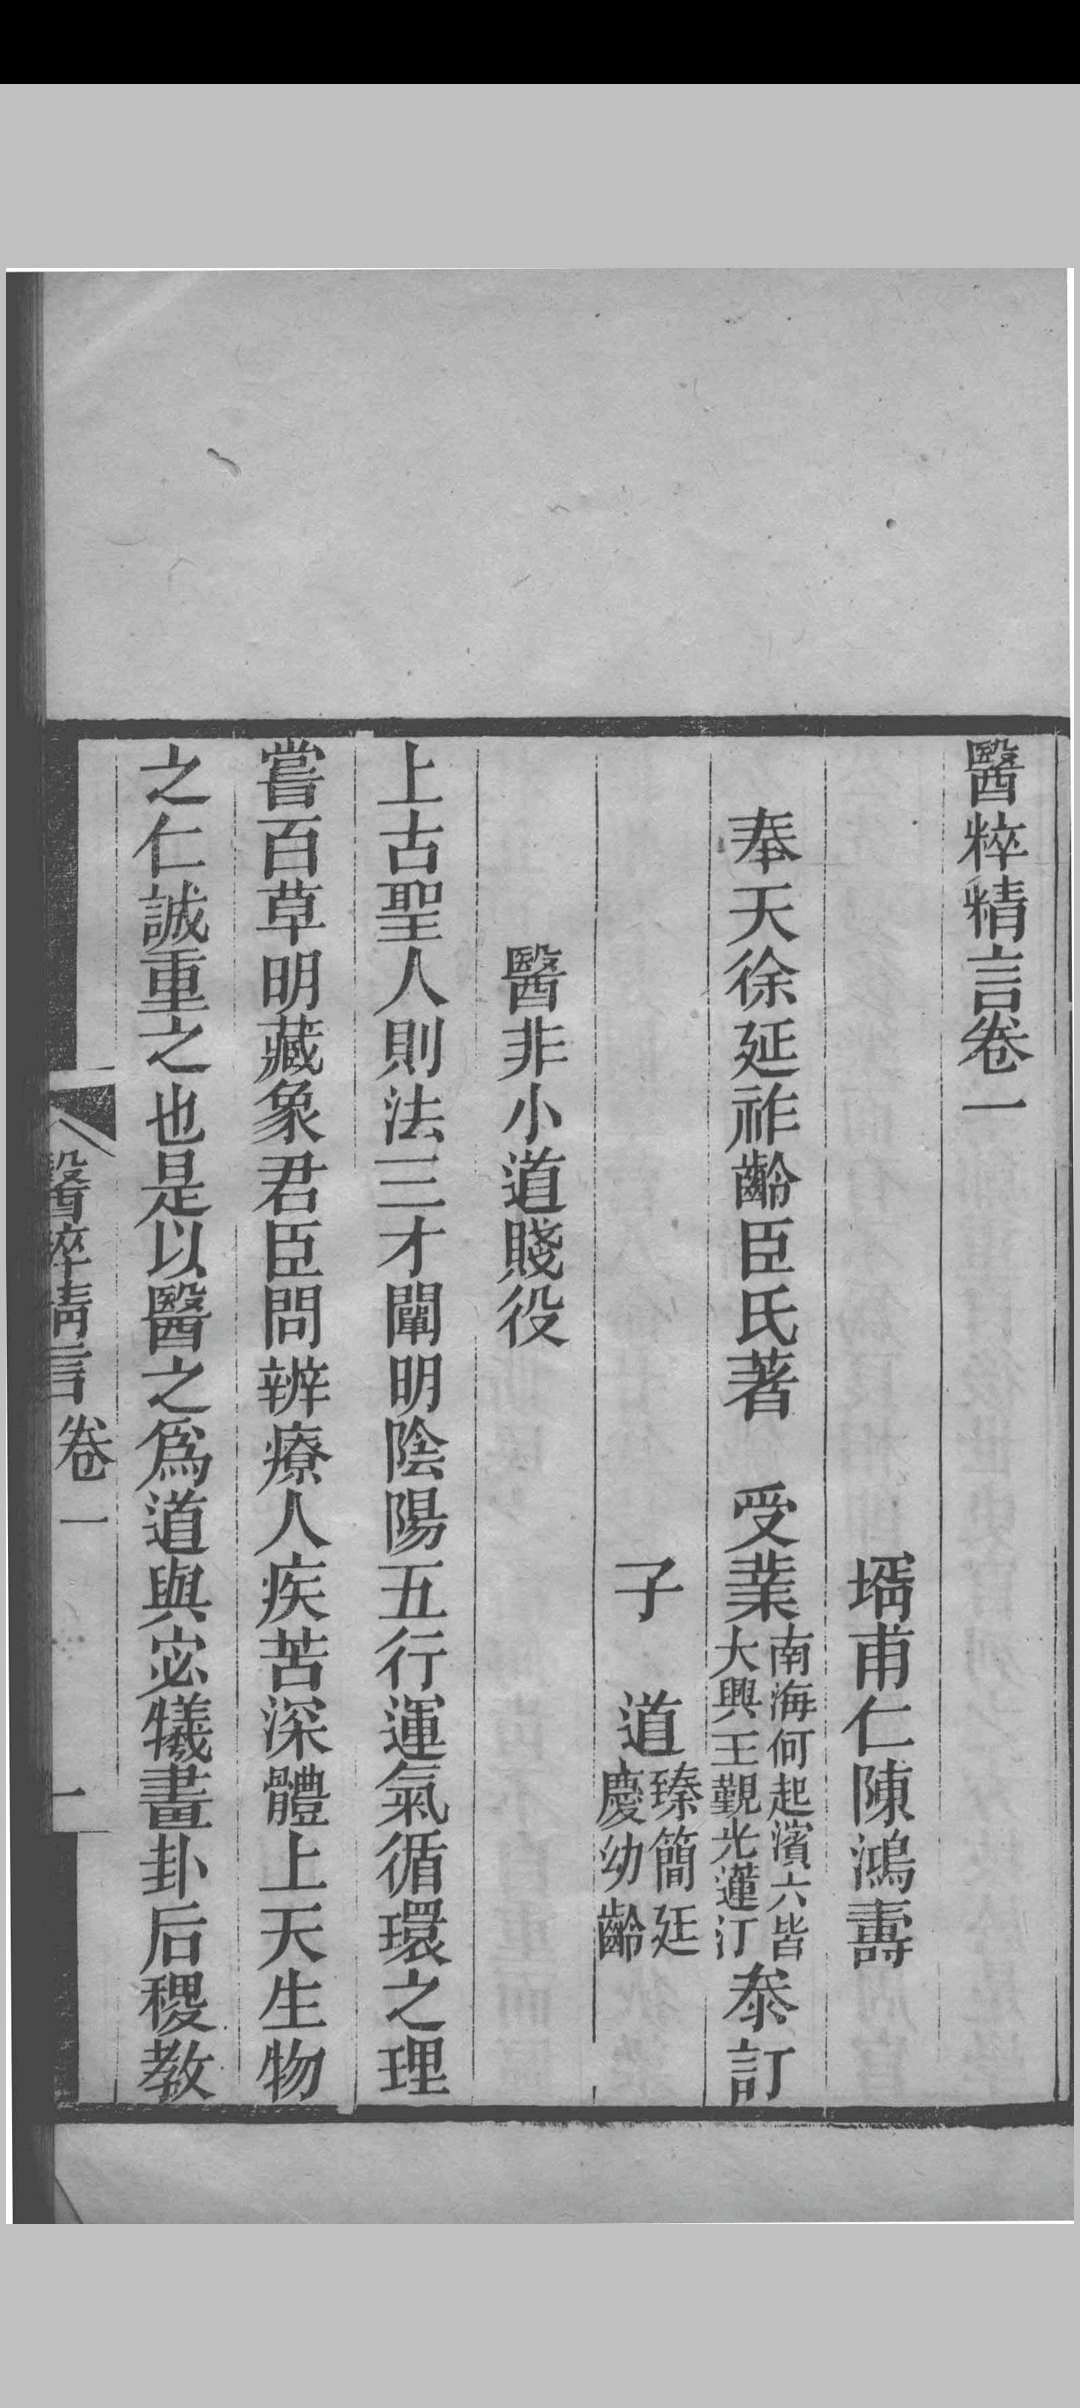 醫粹精言卷一
壻甫仁陳鴻壽
奉天徐延祚齡臣氏著 受業南海何起濱六皆大興王觐光蓮汀叅訂
子 道臻簡廷慶幼齡
醫非小道賤役
上古聖人則法三才闡明陰陽五行運氣循環之理
嘗百草明藏象君臣問辨療人疾苦深體上天生物
之仁誠重之也是以醫之爲道與宓犧畫卦后稷教
醫粹精言卷一 一